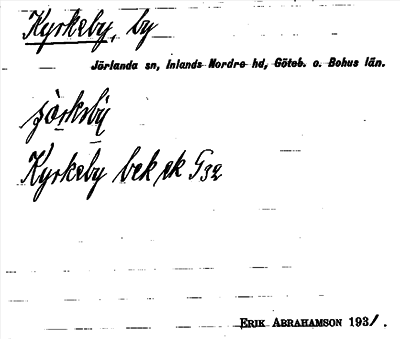 Kyrkeby, by
Jörlanda sn, Inlands Nordre hd, Göteb. o. Bohus län.
Kyrkeby bek ek G32
ERIK ABRAHAMSON 1931.